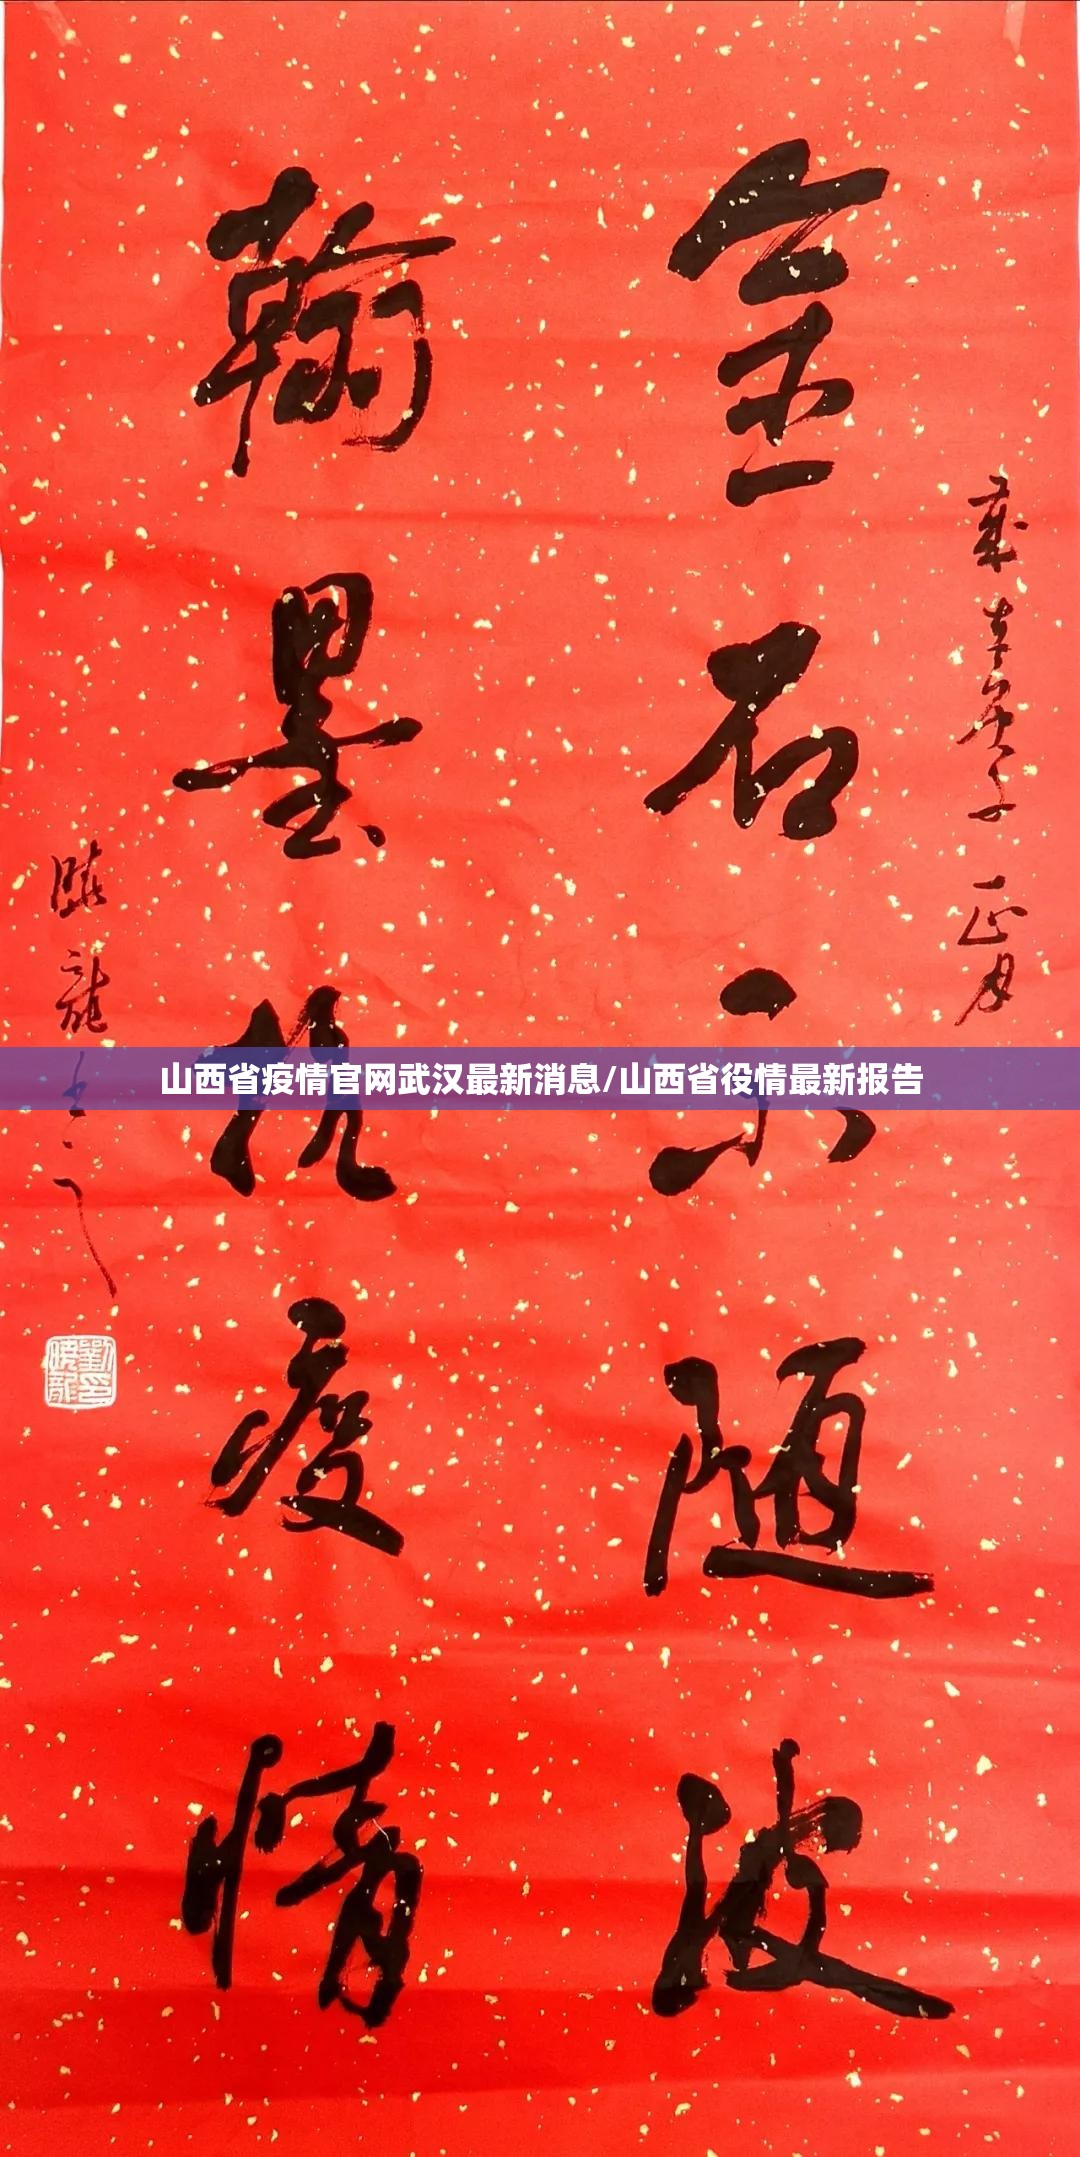 金石不随波
翰墨抗疫情
正月
山西省疫情官网武汉最新消息/山西省役情最新报告